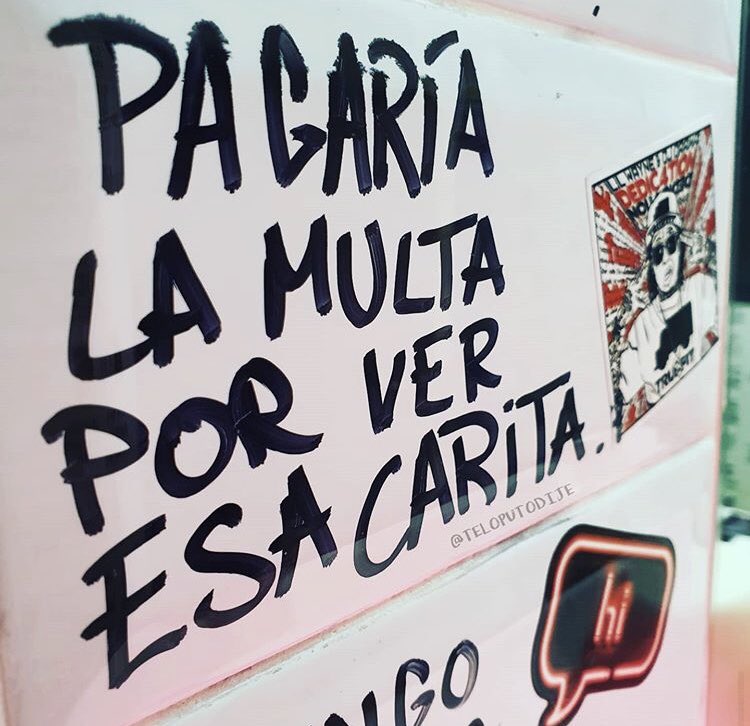 PAGARÍA
LA MULTA
POR VER
ESA CARITA.
@TELOPUTODIJE
DEDICATION
TRUKFIT
hi